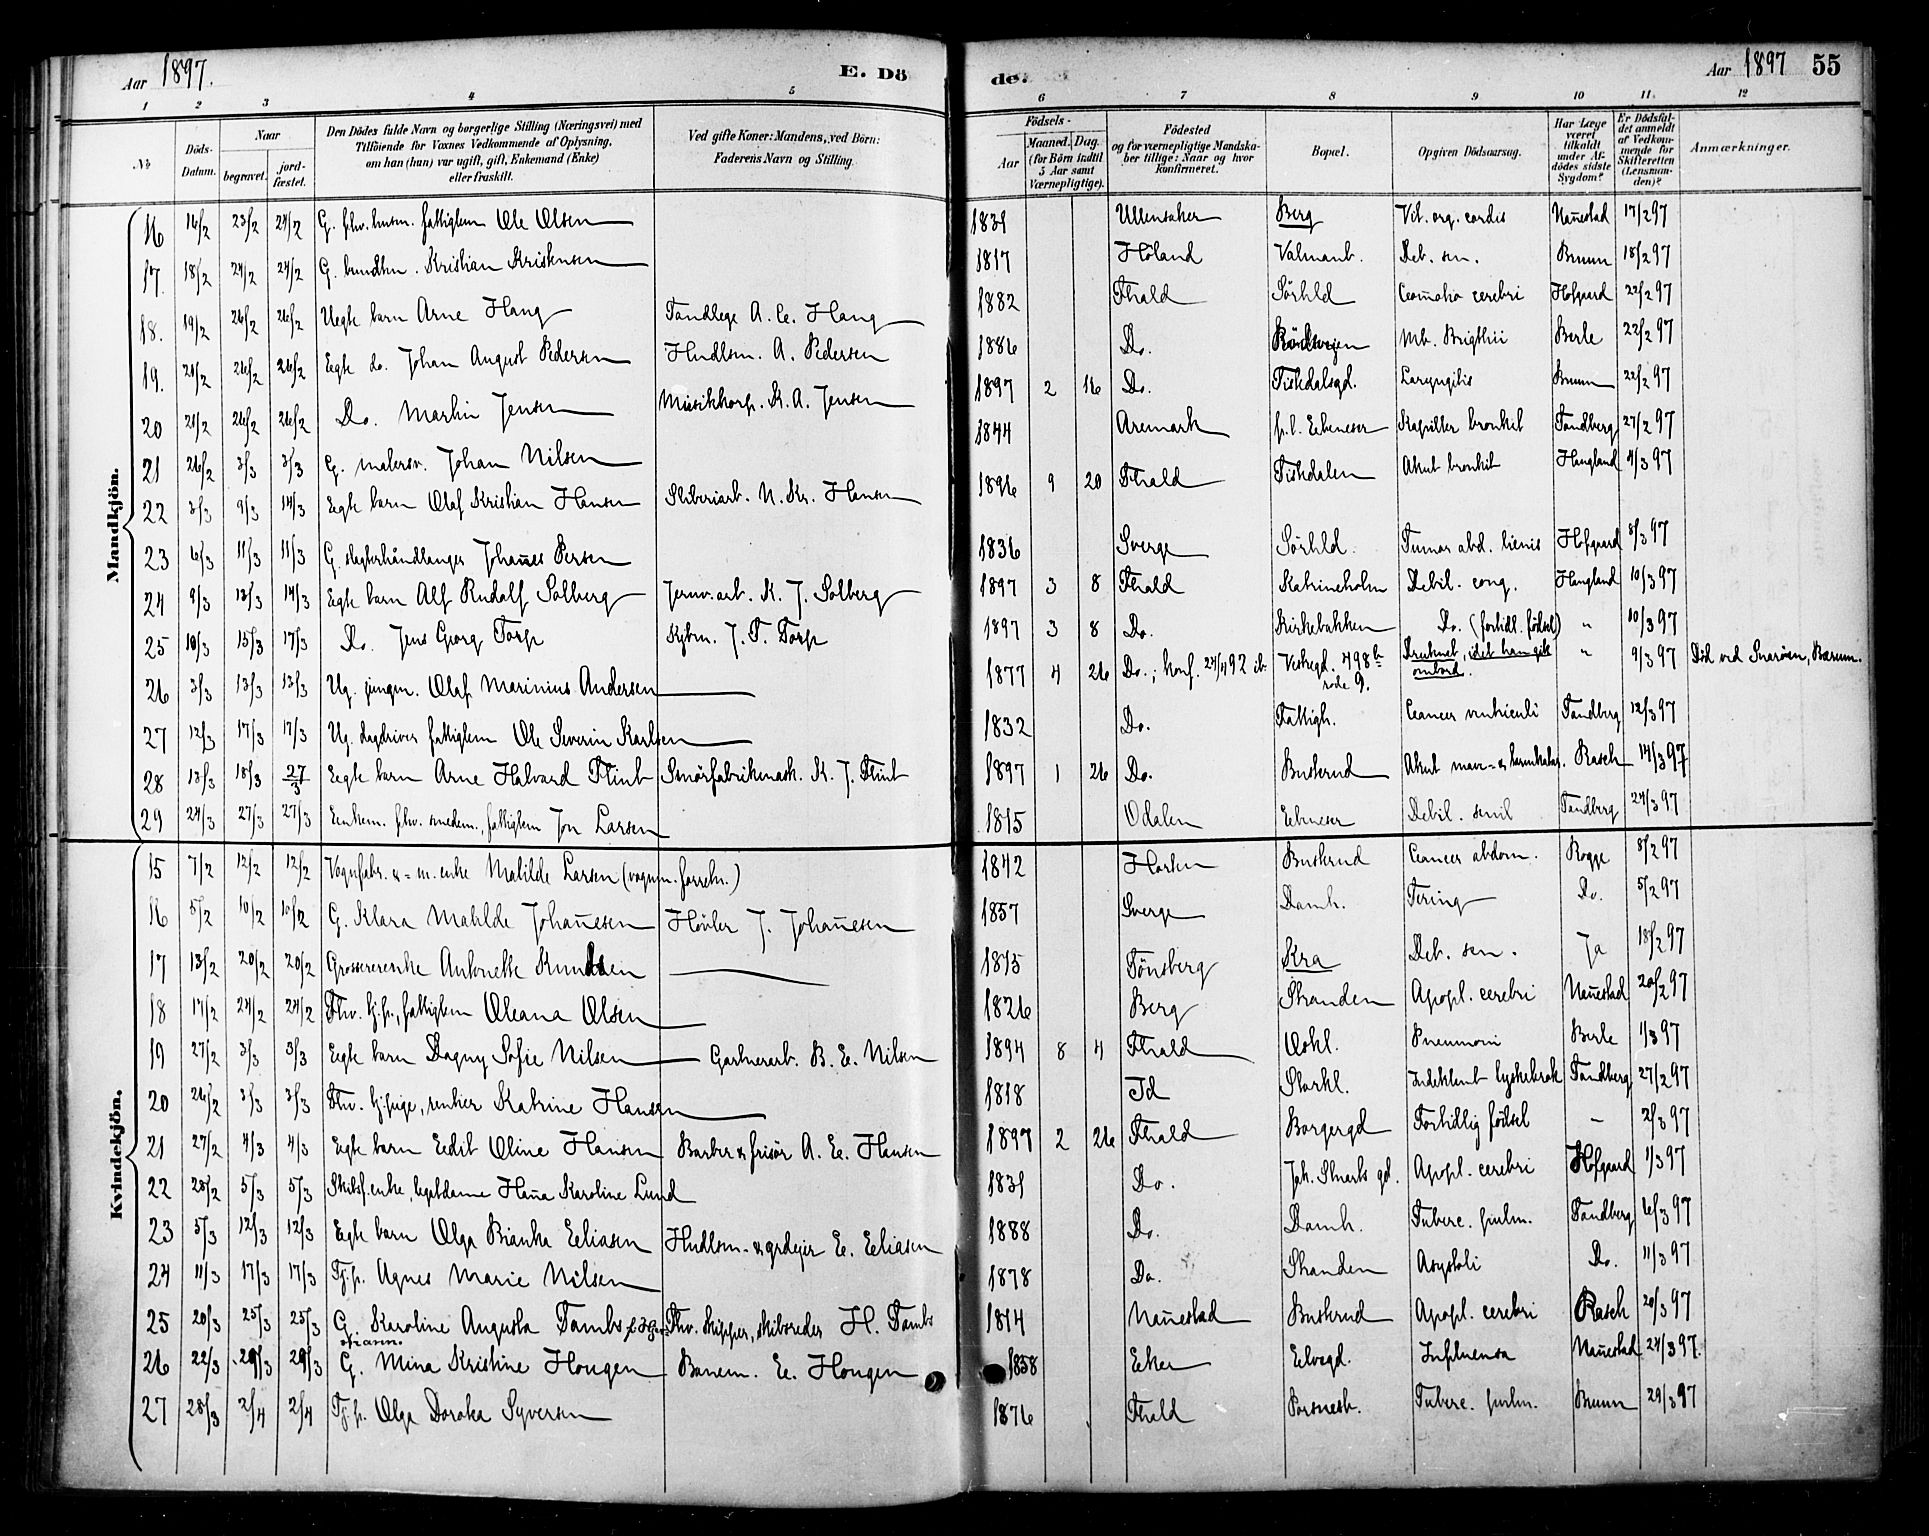 Aar 1897.
E. Dö
de.
Aar 1897 55
1 2 3 4 5 6 7 8 9 10 11 12
No
Döds-Datum.
Naar
begravet.
jord-fæstet.
Den Dödes fulde Navn og borgerlige Stilling (Næringsvei) med
Tilföiende for Voxnes Vedkommende af Oplysning,
om han (hun) var ugift, gift, Enkemand (Enke)
eller fraskilt.
Ved gifte Koner: Mandens, ved Börn:
Faderens Navn og Stilling.
Födsels-
Aar
Maaned. Dag.
(for Börn indtil
5 Aar samt
Værnepligtige).
Födested
og for værnepligtige Mandska-
ber tillige: Naar og hvor
konfirmeret.
Bopæl.
Opgiven Dödsaarsag.
Har Læge
været
tilkaldt
under Af-
dödes sidste
Sygdom?
Er Dödsfal-
det anmeldt
af Vedkom-
mende for
Skifteretten
(Lensman-
den)?
Anmærkninger.
Mandkjön.
16 16/2 23/2 24/2 G. fhv. husm. fattiglem Ole Olsen 1839 Ullensaker Berg Vit. org. cordis Nannestad 17/2 97
17. 18/2 24/2 24/2 G. Kristian Kristensen 1817 Höland Deb. sen. Bruun 18/2 97
18. 19/2 26/2 26/2 Uegte barn Arne Haug Tandlege A. C. Haug 1882 Fhald Sörhld Comotio cerebri Hofgaard 22/2 97
19. 21/2 26/2 26/2 Egte do. Johan August Pedersen Hndlsm. A. Pedersen 1886 Do. Rödsvejen Mb. Brigthii Berle 22/2 97
20 21/2 26/2 26/2 Do. Martin Jensen Musikkorp. K. A. Jensen 1897 2 16 Do. Tistedalsgd. Laryngitis Bruun 22/2 97
21 26/2 3/3 3/3 G. malersv. Johan Nilsen 1844 Aremark p. l. Ebeneser Kapillær bronkit Tandberg 27/2 97
22 3/3 9/3 14/3 Egte barn Olaf Kristian Hansen Sliberiarb. N. Kr. Hansen 1896 9 20 Fhald Tistedalen Akut bronkit Haugland 4/3 97
23 6/3 11/3 11/3 G. slagterhåndlanger Johannes Persen 1836 Sverge Sörhld. Tumor abd. lienis Hofgaard 8/3 97
24 9/3 13/3 14/3 Egte barn Alf Rudolf Solberg Jernv.arb. K. J. Solberg 1897 3 8 Fhald Katrineholm Debil. cong. Haugland 10/3 97
25 10/3 15/3 17/3 Do. Jens Georg Torp Kjbm. J. F. Torp 1897 3 8 Do. Kirkebakken Do. (fortidl. födsel) " 10/3 97
26 3/3 13/3 13/3 Ug. jungm. Olaf Marinius Andersen 1877 4 26 Do.; konf. 24/4 92 ib. Vestregd. 498 b rode 9. Druknet, idet han gik ombord. " 9/3 97 Död ved Snaröen, Bærum.
27 12/3 17/3 17/3 Ug. dagdriver fattiglem Ole Severin Karlsen 1832 Do. Fattigh. Cancer ventriculi Tandberg 12/3 97
28 13/3 18/3 27/3 Egte barn Arne Halvard Flint Smörfabrikmask. K. J. Flint 1897 1 26 Do. Buskrud Akut mave- & tarmkatar. Rasch 14/3 97
29 24/3 27/3 27/3 Enkem. fhv. smedem., fattiglem Jon Larsen 1815 Odalen Ebeneser Debil. senil Tandberg 24/3 97
Kvindekjön.
15 7/2 12/2 12/2 Vognfabr. & =m. enke Matilde Larsen (vognm. forretn.) 1842 Horten Buskrud Cancer abdom. Rogge 8/2 97
16 5/2 10/2 10/2 G. Klara Matilde Johannesen Hövler J. Johannesen 1857 Sverge Damh. Tering Do. 5/2 97
17 13/2 20/2 20/2 Grossererenke Antonette Knudsen 1815 Tönsberg Kra Deb. sen. Ja 18/2 97
18 17/2 24/2 24/2 Fhv. tj.p., fattiglem Oleana Olsen 1826 Berg Stranden Apopl. cerebri Nannestad 20/2 97
19 27/2 3/3 3/3 Egte barn Dagny Sofie Nilsen Gartnerarb. B. E. Nilsen 1894 8 4 Fhald Oskl. Pneumoni Berle 1/3 97
20 26/2 3/3 3/3 Fhv. tj.pige, rentier Katrine Hansen 1818 Id Storkl. Indeklemt lyskebrok Tandberg 27/2 97
21 27/2 4/3 4/3 Egte barn Edit Oline Hansen Barber & frisör A. E. Hansen 1897 2 26 Fhald Borgergd Fortidlig födsel — 2/3 97
22 28/2 5/3 5/3 Skibsf.enke, legatdame Hanna Karoline Lund 1839 Do. Joh. Stuarts gd. Apopl. cerebri Hofgaard 1/3 97
23 5/3 12/3 12/3 Egte barn Olga Bianka Eliasen Hndlsm.- & grdejer E. Eliasen 1888 Do. Damh. Tuberc. pulm. Tandberg 6/3 97
24 11/3 17/3 17/3 Tj.p. Agnes Marie Nilsen 1878 Do. Stranden Asystoli Do. 11/3 97
25 20/3 25/3 25/3 G. Karoline Augusta Tambs Fhv. skipper, skibsreder H. Tambs 1814 Nannestad Buskrud Apopl. cerebri Rasch 20/3 97
26 22/3 29/3 29/3 G. Mina Kristine Hougen Banem. E. Hougen 1858 Eker Elvegd. Influensa Nannestad 24/3 97.
27 28/3 2/4 2/4 Tj.p. Olga Dorotea Syversen 1876 Fhald Porsnesk. Tuberc. pulm. Bruun 29/3 97